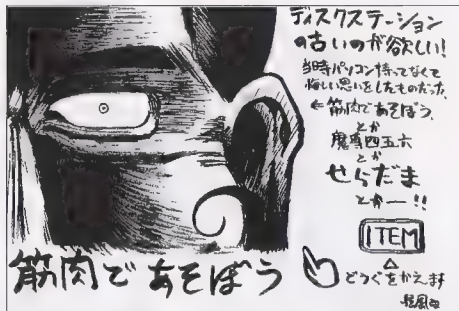 ディスクステーション
の古いのが欲しい!
当時パソコン持ってなくて
悔しい思いをしたものだった。
←筋肉であそぼう
とか
魔導四五六
とか
せらだま
とかー!!
ITEM
どうぐをかえます
筋肉であそぼう